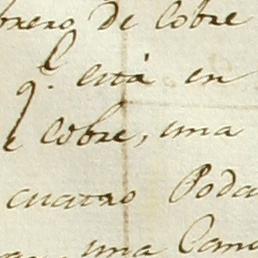 brero de cobre
q.^e está en
e cobre, una
cuatro Poda
una Can